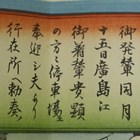 御発輦同月
十五日廣島江
御着輦貴顕
の方々停車場に
奉迎し夫より
行在所へ勅奏